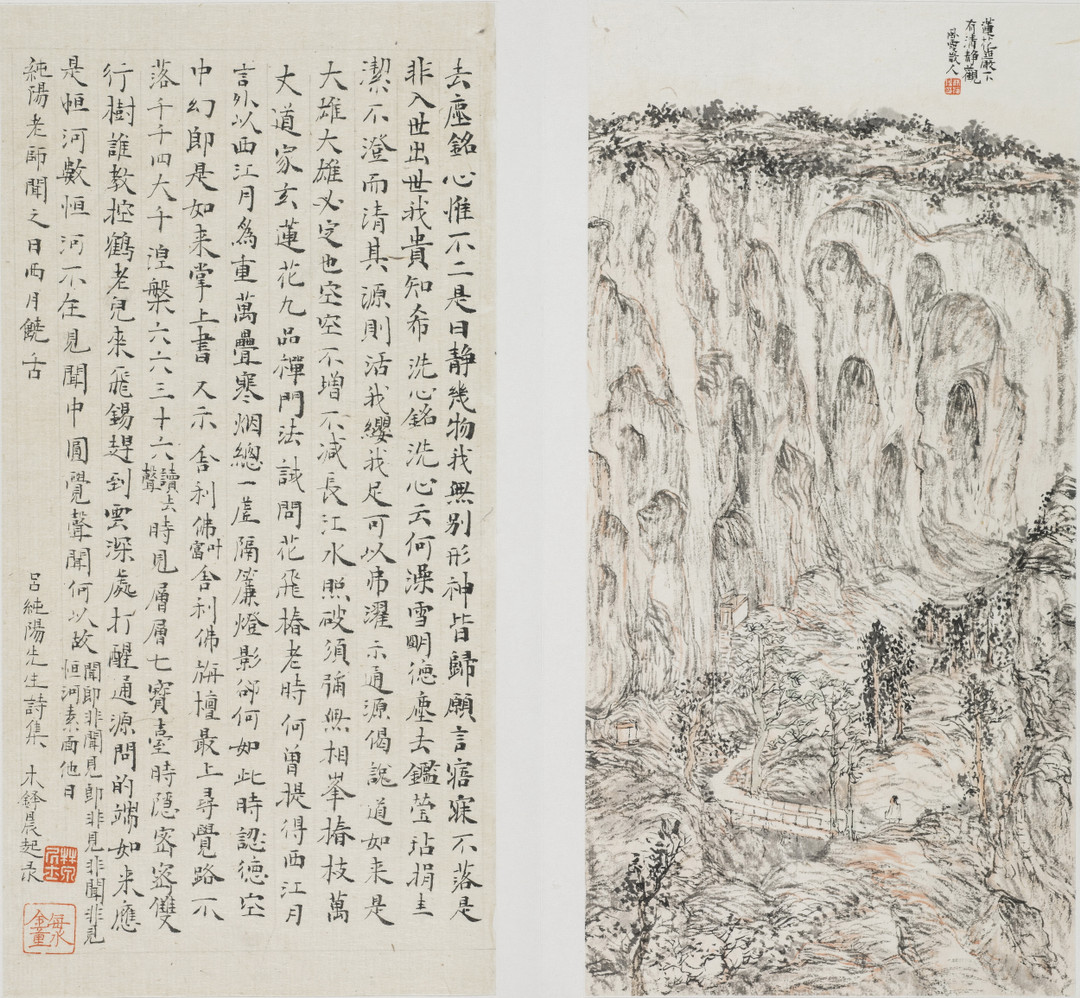 蓮花巖下
有清静觀
風雪散人
去塵銘心惟不二是曰静幾物我無别形神皆歸願言寤寐不落是
非入世出世我貴知希洗心銘洗心云何澡雪明德塵去鑑瑩玷捐圭
潔不澄而清其源則活我纓我足可以弗濯示通源偈說道如来是
大雄大雄必定也空空不增不减長江水照破須彌無相峯椿枝萬
丈道家玄蓮花九品禪門法試問花飛椿老時何曾提得西江月
言外以西江月為重萬疊寒烟總一虚隔簾燈影卻何如此時認德空
中幻即是如来掌上書又示舍利佛舍利佛旃檀最上尋覺路不
落千千四大千湼槃六六三十六讀去聲時見層層七寳臺時隱密密雙
行樹誰教控鶴老兒来飛錫趕到雲深處打醒通源問的端如来應
是恒河數恒河不在見聞中圓覺聲聞何以故聞即非聞見即非見非聞非見恒河素面他日
純陽老師聞之曰西月饒舌
呂純陽先生詩集 木鐸晨起录